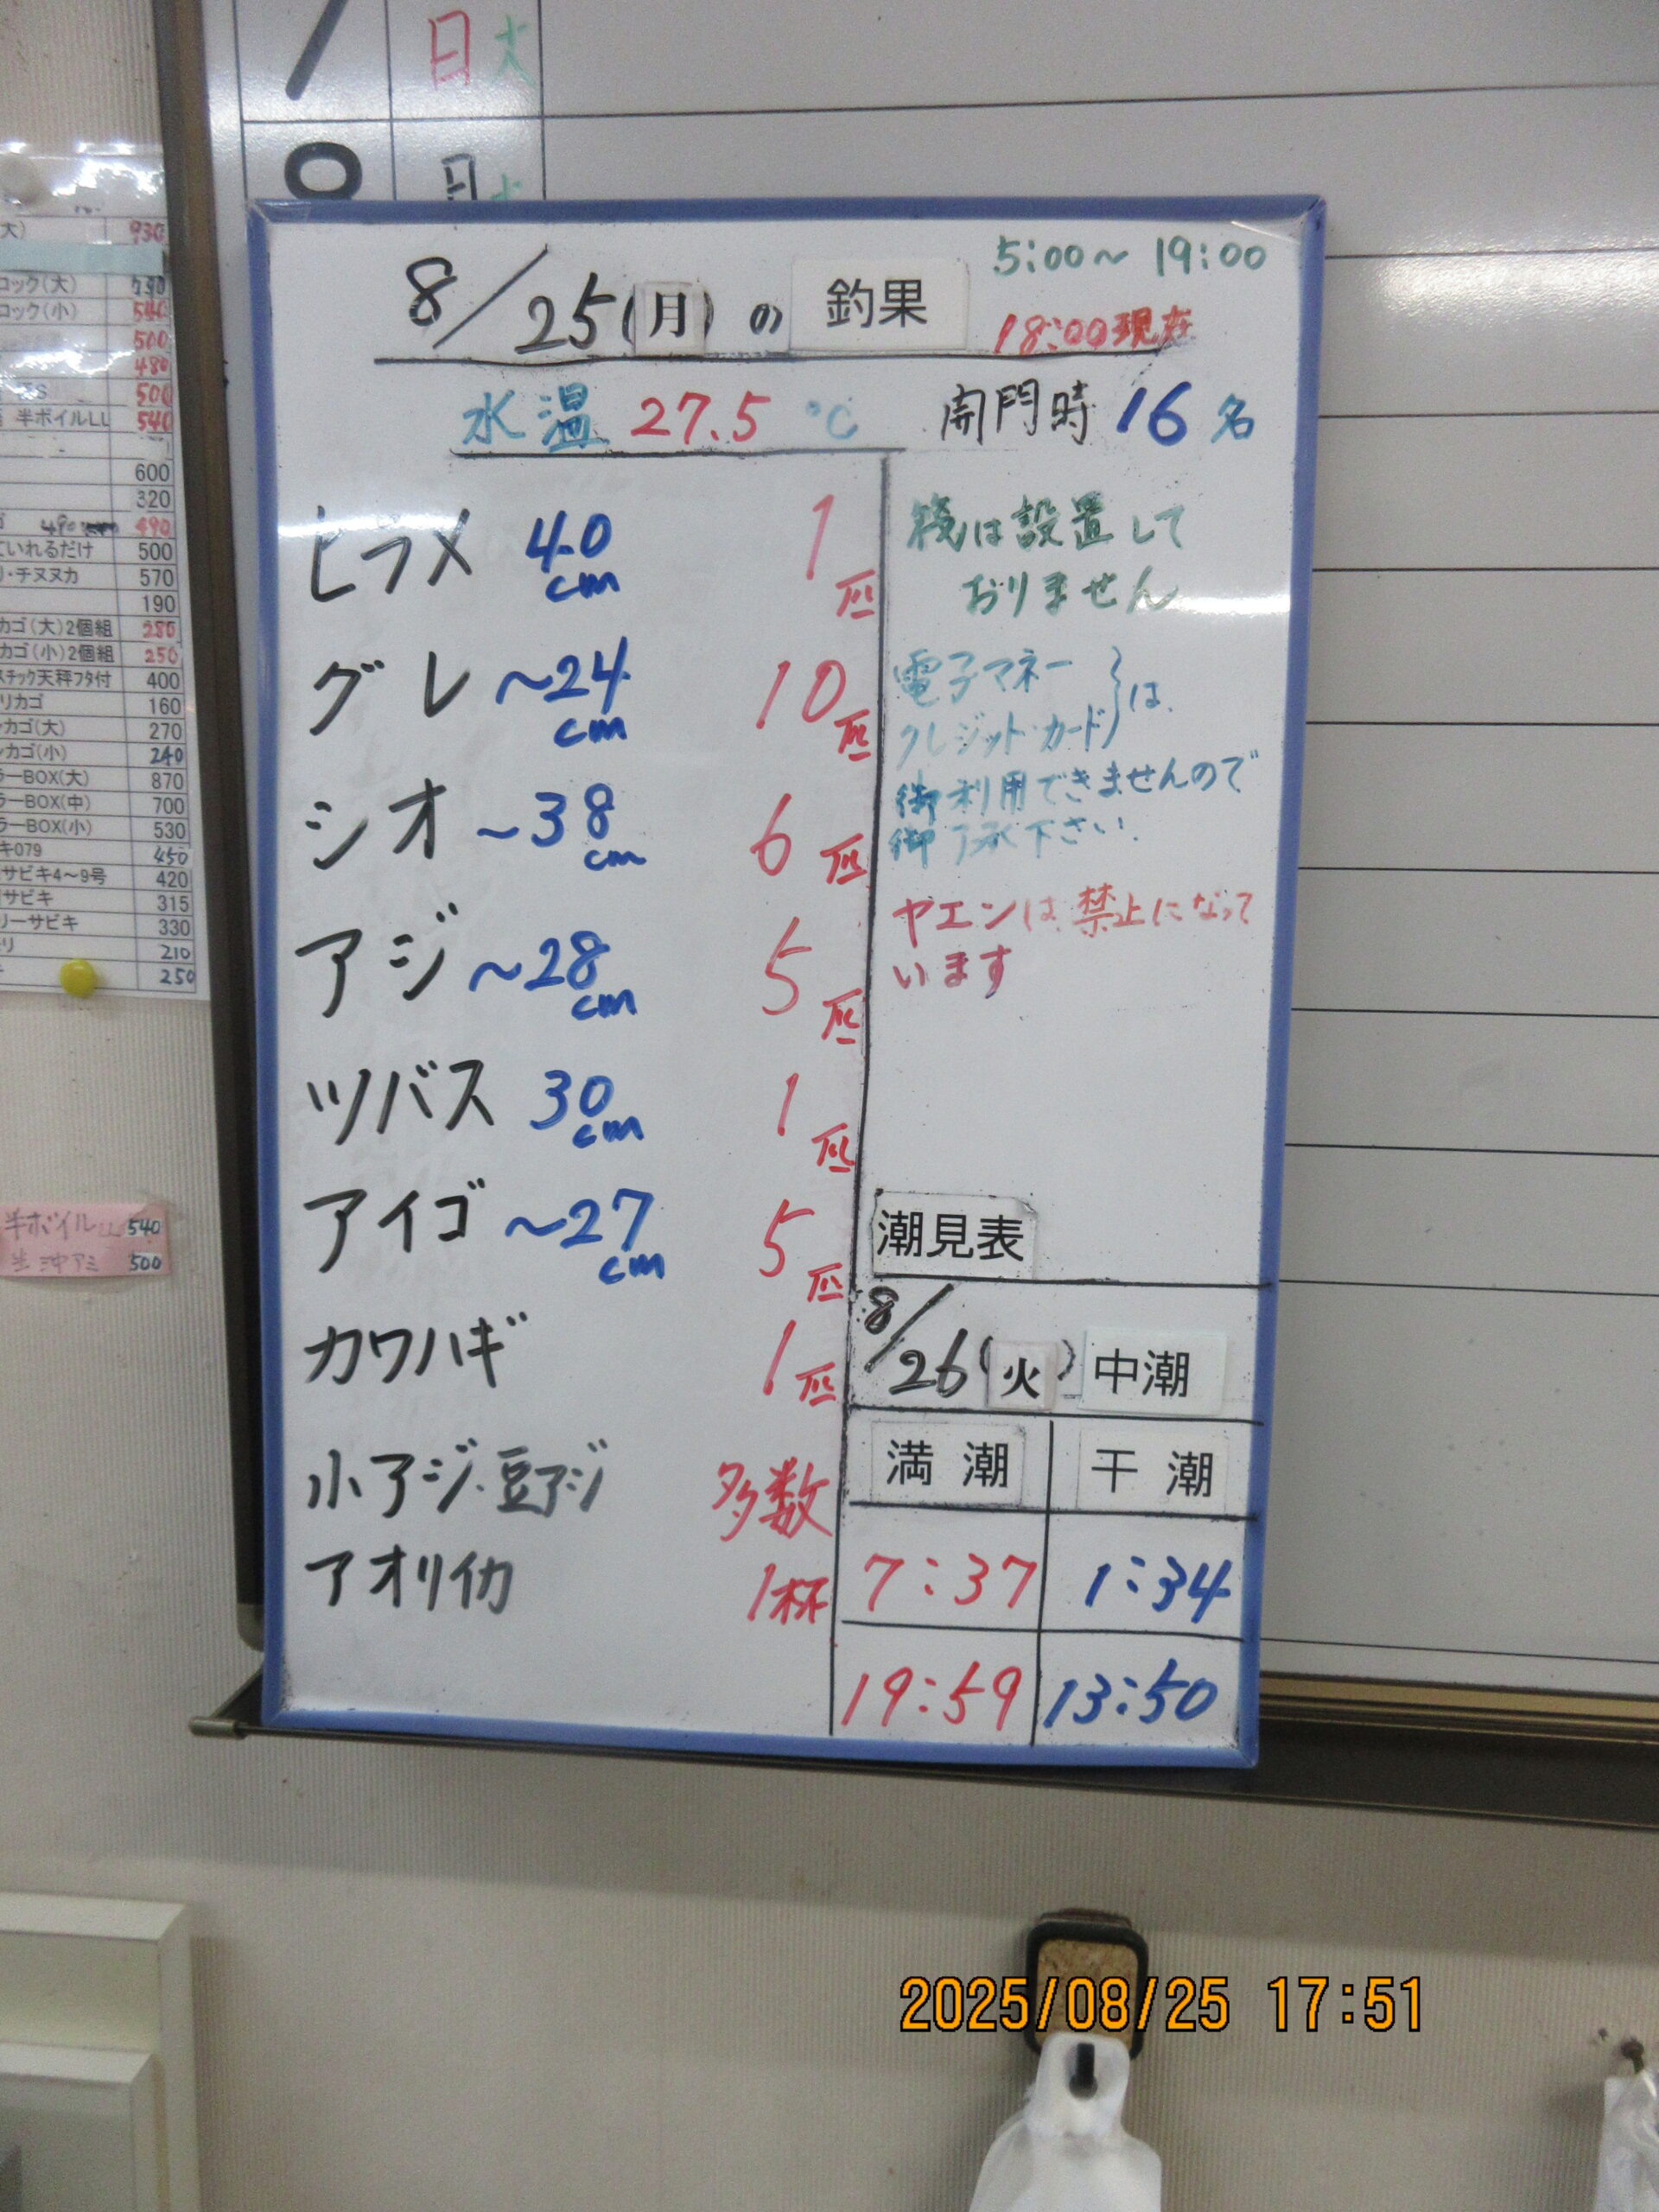 日 火
日
8/25(月)の 釣果
5:00～19:00
18:00現在
水温 27.5 ℃
開門時 16名
ヒラメ 40cm 1匹
グレ ～24cm 10匹
シオ ～38cm 6匹
アジ ～28cm 5匹
ツバス 30cm 1匹
アイゴ ～27cm 5匹
カワハギ 1匹
小アジ・豆アジ 多数
アオリイカ 1杯
筏は設置して
おりません
電子マネー
クレジット・カード}は
御利用できませんので
御了承下さい.
ヤエンは禁止になって
います
潮見表
8/26(火) 中潮
満潮 干潮
7:37 1:34
19:59 13:50
大) 930
コック(大)
コック(小) 540
500
480
S 500
半ボイルLL 540
600
320
490
ていれるだけ 500
リ・チヌヌカ 570
190
カゴ(大)2個組 280
カゴ(小)2個組 250
スチック天秤フタ付 400
リカゴ 160
カゴ(大) 270
カゴ(小) 240
ラーBOX(大) 870
ラーBOX(中) 700
ラーBOX(小) 530
キ079 450
サビキ4～9号 420
サビキ 315
リーサビキ 330
リ 210
250
半ボイルLL 540
生 沖アミ 500
2025/08/25 17:51